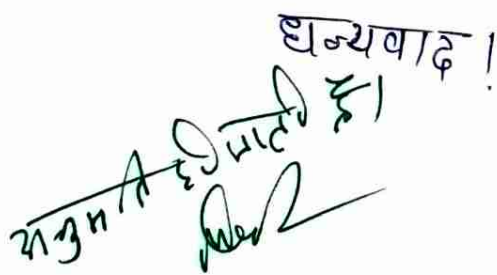 धन्यवाद !
अनुमति दी जाती है।